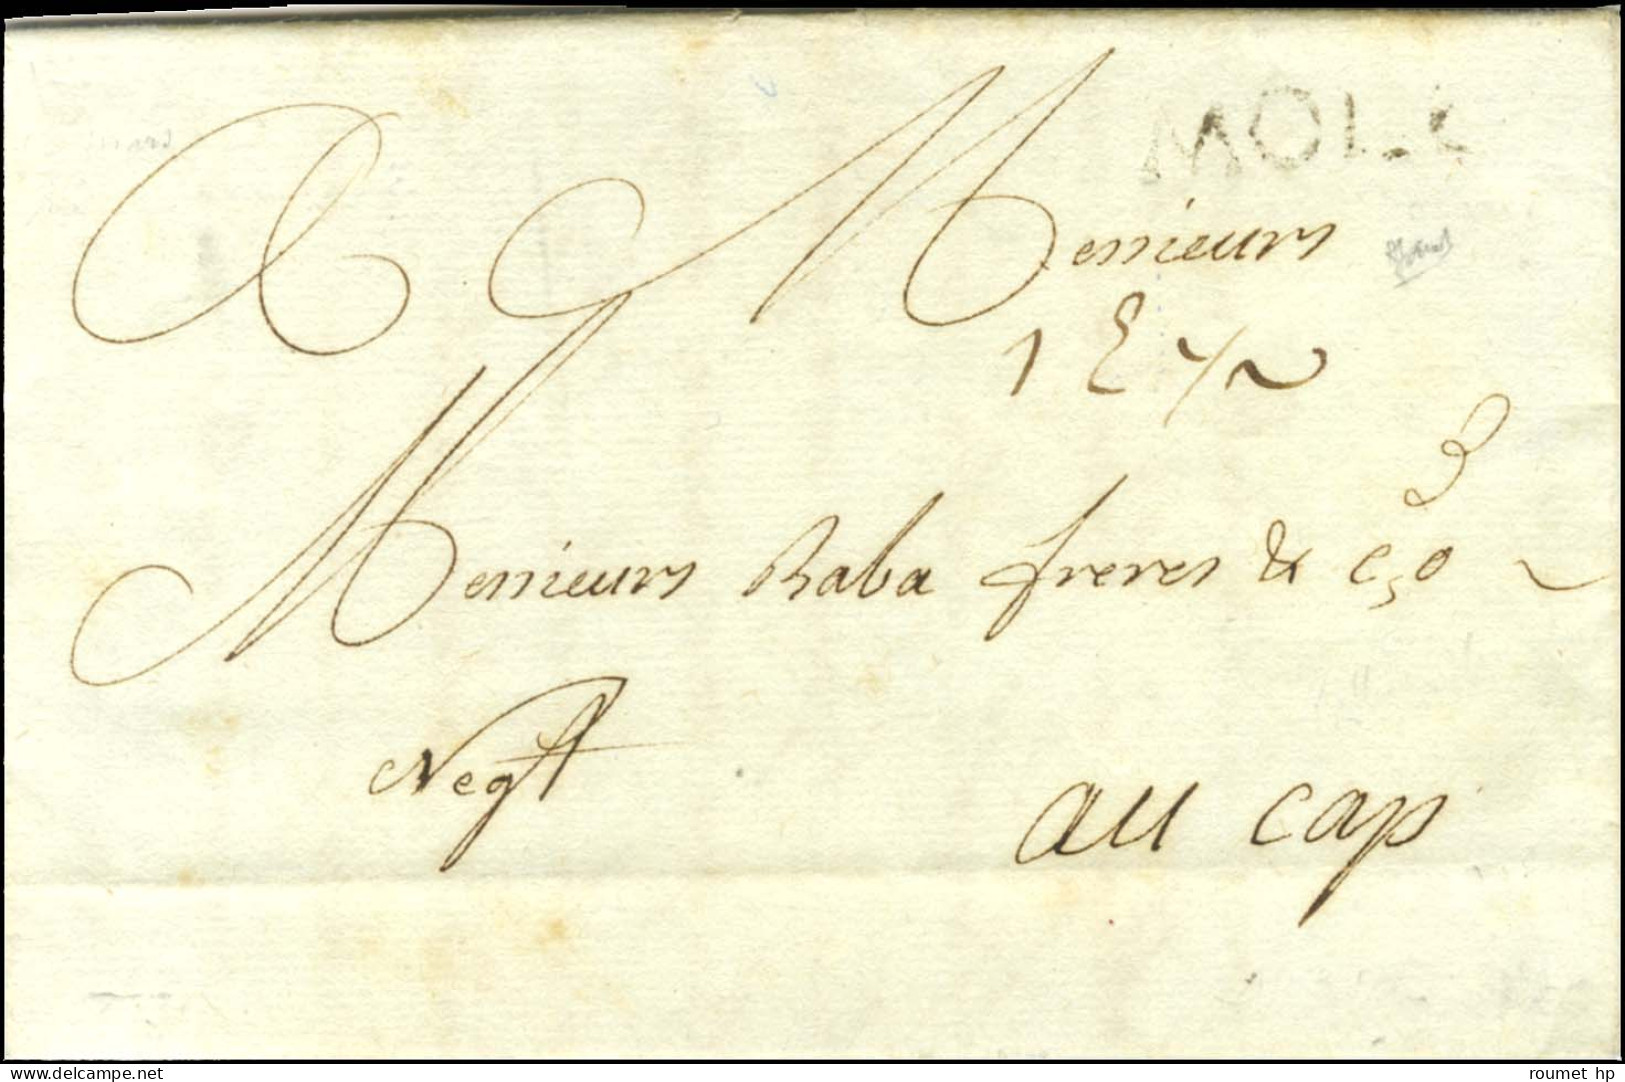 MOLE
A Messieurs
3
Messieurs Raba freres & C,o
Negt
au cap
delcampe.net
roumet hp